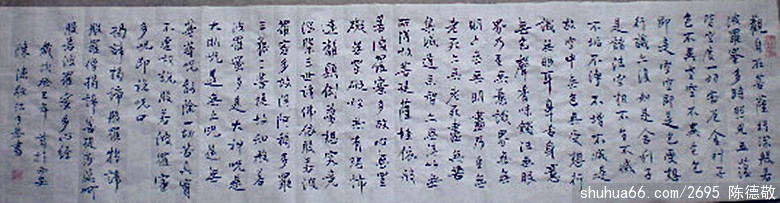 觀自在菩薩行深般若
波羅蜜多時照見五蘊
皆空度一切苦厄舍利子
色不異空空不異色色
即是空空即是色受想
行識亦復如是舍利子
是諸法空相不生不滅
不垢不淨不增不減是
故空中無色無受想行
識無眼耳鼻舌身意
無色聲香味觸法無眼
界乃至無意識界無無
明亦無無明盡乃至無
老死亦無老死盡無苦
集滅道無智亦無得以無
所得故菩提薩埵依般
若波羅蜜多故心無罣
礙無罣礙故無有恐怖
遠離顛倒夢想究竟
涅槃三世諸佛依般若波
羅蜜多故得阿耨多羅
三藐三菩提故知般若
波羅蜜多是大神咒是
大明咒是無上咒是無
等等咒能除一切苦真實
不虛故說般若波羅蜜
多咒即說咒曰
揭諦揭諦般羅揭諦
般羅僧揭諦菩提薩婆訶
般若波羅蜜多心經
陳德敬
shuhua66.com/2695 陈德敬